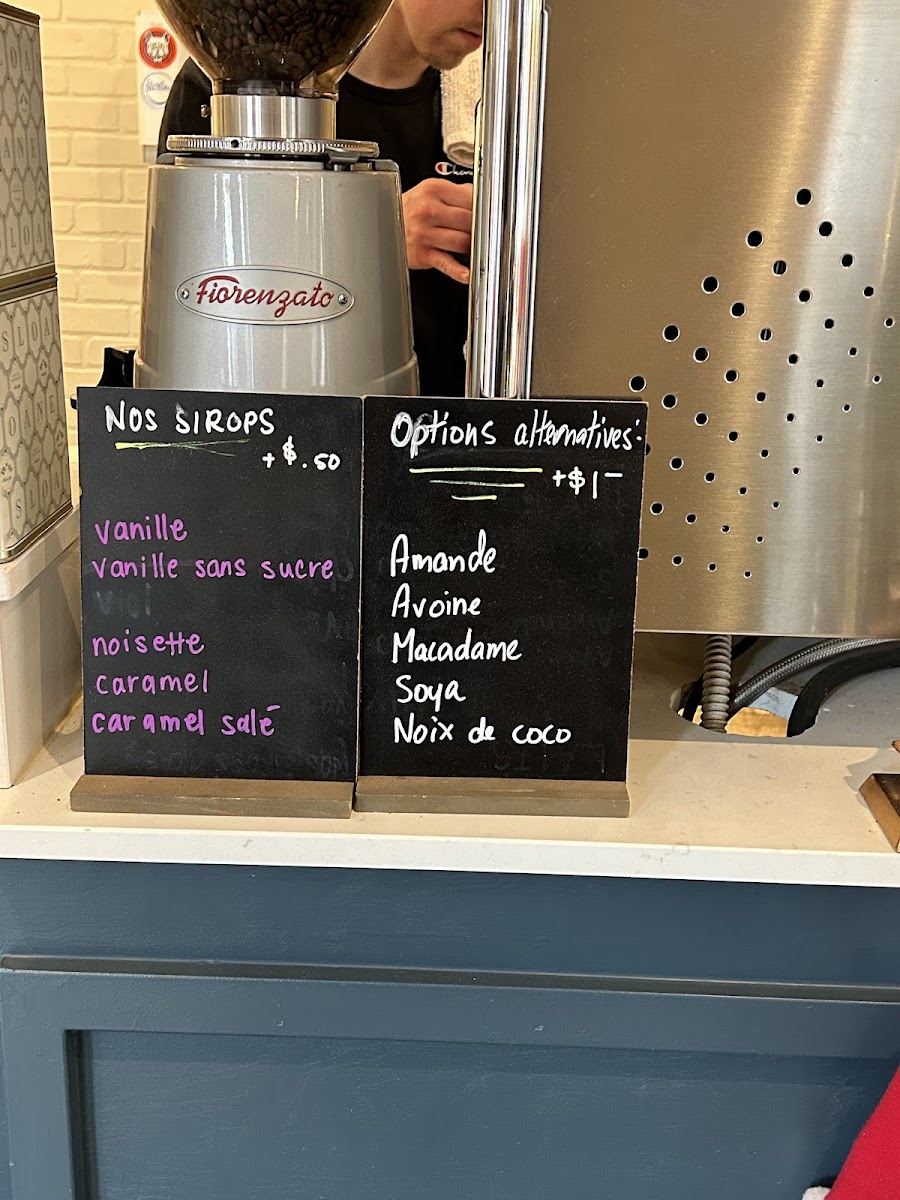 Fiorenzato
NOS SIROPS
+ $.50
vanille
vanille sans sucre
noisette
caramel
caramel salé
Options alternatives:
+$1-
Amande
Avoine
Macadame
Soya
Noix de coco